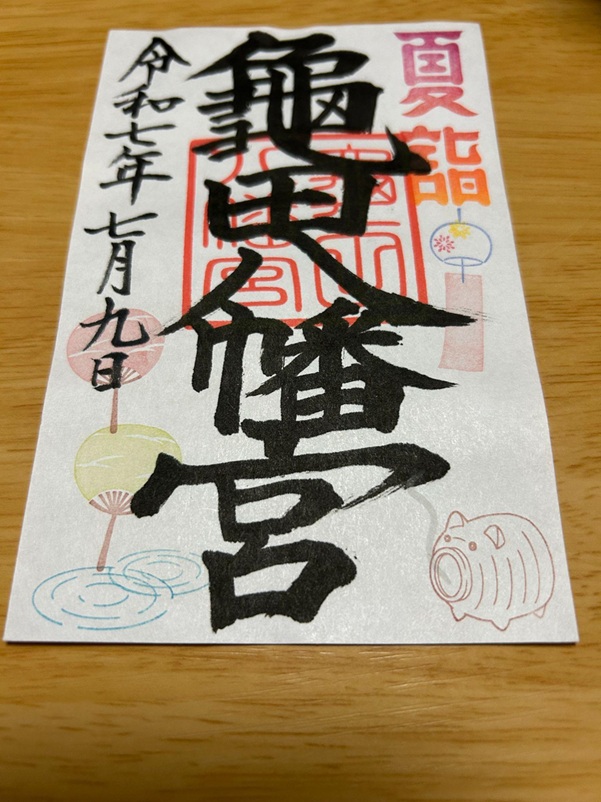 夏詣
龜田八幡宮
令和七年 七月九日